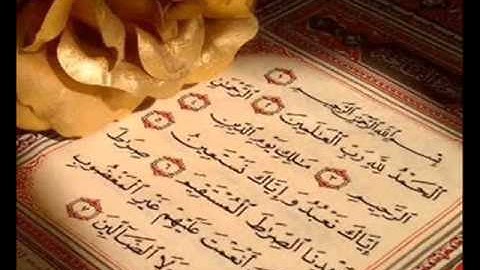 بِسْمِ اللَّهِ الرَّحْمَٰنِ الرَّحِيمِ ١
الْحَمْدُ لِلَّهِ رَبِّ الْعَٰلَمِينَ ٢ الرَّحْمَٰنِ
الرَّحِيمِ ٣ مَٰلِكِ يَوْمِ الدِّينِ ٤
إِيَّاكَ نَعْبُدُ وَإِيَّاكَ نَسْتَعِينُ ٥
الصِّرَٰطَ الْمُسْتَقِيمَ ٦ صِرَٰطَ
أَنْعَمْتَ عَلَيْهِمْ غَيْرِ الْمَغْضُوبِ
لَا الضَّالِّينَ ٧